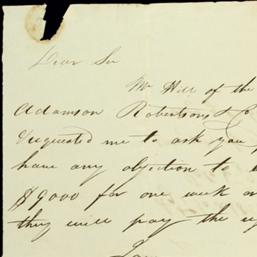 Dear Sir
Mr Hill of the
Adamson Robertson & Co
requested me to ask you
have any objection to
$9000 for one week
they will pay the